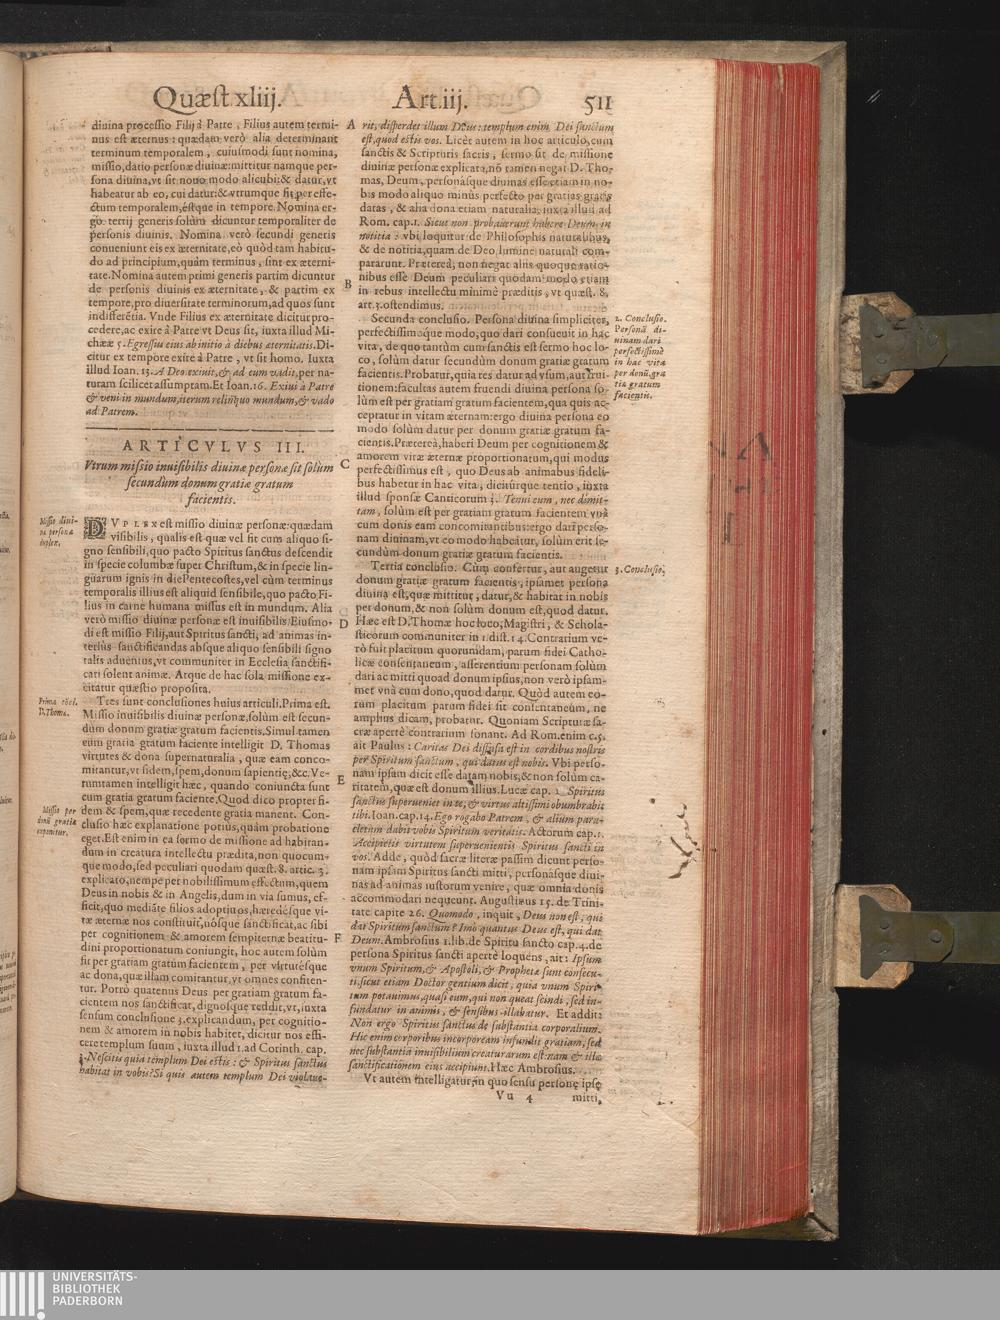 Quæst xliij.
Art. iij.
511
diuina processio Filij à Patre, Filius autem termi-
nus est æternus: quædam verò alia determinant
terminum temporalem, cuiusmodi sunt nomina,
missio, datio personæ diuinæ: mittitur namque per-
sona diuina, vt sit nouo modo alicubi: & datur, vt
habeatur ab eo, cui datur: & vtrumque sit per effe-
ctum temporalem, éstque in tempore. Nomina er-
go tertij generis solùm dicuntur temporaliter de
personis diuinis. Nomina verò secundi generis
conueniunt eis ex æternitate, eò quòd tam habitu-
do ad principium, quàm terminus, sint ex æterni-
tate. Nomina autem primi generis partim dicuntur
de personis diuinis ex æternitate, & partim ex
tempore, pro diuersitate terminorum, ad quos sunt
indifferẽtia. Vnde Filius ex æternitate dicitur pro-
cedere, ac exire à Patre vt Deus sit, iuxta illud Mi-
chææ 5. Egressus eius ab initio à diebus æternitatis. Di-
citur ex tempore exire à Patre, vt sit homo. Iuxta
illud Ioan. 13. A Deo exiuit, & ad eum vadit, per na-
turam scilicet assumptam. Et Ioan. 16. Exiui à Patre
& veni in mundum, iterum relinquo mundum, & vado
ad Patrem.
ARTICVLVS III.
Vtrum missio inuisibilis diuinæ personæ sit solùm
secundùm donum gratiæ gratum
facientis.
Missio diui-
næ personæ
duplex.
DVPLEX est missio diuinæ personæ: quædam
visibilis, qualis est quæ vel fit cum aliquo si-
gno sensibili, quo pacto Spiritus sanctus descendit
in specie columbæ super Christum, & in specie lin-
guarum ignis in die Pentecostes, vel cùm terminus
temporalis illius est aliquid sensibile, quo pacto Fi-
lius in carne humana missus est in mundum. Alia
verò missio diuinæ personæ est inuisibilis: Eiusmo-
di est missio Filij, aut Spiritus sancti, ad animas in-
teriùs sanctificandas absque aliquo sensibili signo
talis aduentus, vt communiter in Ecclesia sanctifi-
cati solent animæ. Atque de hac sola missione ex-
citatur quæstio proposita.
Prima cõcl.
D. Thomæ.
Tres sunt conclusiones huius articuli. Prima est.
Missio inuisibilis diuinæ personæ, solùm est secun-
dùm donum gratiæ gratum facientis. Simul tamen
cum gratia gratum faciente intelligit D. Thomas
virtutes & dona supernaturalia, quæ eam conco-
mitantur, vt fidem, spem, donum sapientię, &c. Ve-
rumtamen intelligit hæc, quando coniuncta sunt
cum gratia gratum faciente. Quod dico propter fi-
dem & spem, quæ recedente gratia manent. Con-
Missio per
donũ gratiæ
exponitur.
clusio hæc explanatione potiùs, quàm probatione
eget. Est enim in ea sermo de missione ad habitan-
dum in creatura intellectu prædita, non quocum-
que modo, sed peculiari quodam quæst. 8. artic. 3.
explicato, nempe per nobilissimum effectum, quem
Deus in nobis & in Angelis, dum in via sumus, ef-
ficit, quo mediãte filios adoptiuos, hæredésque vi-
tæ æternæ nos constituit, nósque sanctificat, ac sibi
per cognitionem & amorem sempiternæ beatitu-
dini proportionatum coniungit, hoc autem solùm
fit per gratiam gratum facientem, per virtutésque
ac dona, quæ illam comitantur, vt omnes confiten-
tur. Porrò quatenus Deus per gratiam gratum fa-
cientem nos sanctificat, dignosque reddit, vt, iuxta
sensum conclusione 3. explicandum, per cognitio-
nem & amorem in nobis habitet, dicitur nos effi-
cere templum suum, iuxta illud 1. ad Corinth. cap.
3. Nescitis quia templum Dei estis: & Spiritus sanctus
habitat in vobis? Si quis autem templum Dei violaue-
A
B
C
D
E
F
rit, disperdet illum Deus: templum enim Dei sanctum
est, quod estis vos. Licèt autem in hoc articulo, cum
sanctis & Scripturis sacris, sermo sit de missione
diuinæ personæ explicata, nõ tamen negat D. Tho-
mas, Deum, personásque diuinas esse etiam in no-
bis modo aliquo minùs perfecto per gratias gratis
datas, & alia dona etiam naturalia, iuxta illud ad
Rom. cap. 1. Sicut non probauerunt habere Deum in
notitia: vbi loquitur de Philosophis naturalibus,
& de notitia, quam de Deo lumine naturali com-
pararunt. Prætereà, non negat aliis quoque ratio-
nibus esse Deum peculiari quodam modo etiam
in rebus intellectu minimè præditis, vt quæst. 8.
art. 3. ostendimus.
2. Conclusio.
Personã di-
uinam dari
perfectissimè
in hac vita
per donũ gra
tiæ gratum
facientis.
Secunda conclusio. Persona diuina simpliciter,
perfectissimoque modo, quo dari consueuit in hac
vita, de quo tantùm cum sanctis est sermo hoc lo-
co, solùm datur secundùm donum gratiæ gratum
facientis. Probatur, quia res datur ad vsum, aut frui-
tionem: facultas autem fruendi diuina persona so-
lùm est per gratiam gratum facientem, qua quis ac-
ceptatur in vitam æternam: ergo diuina persona eo
modo solùm datur per donum gratiæ gratum fa-
cientis. Prætereà, haberi Deum per cognitionem &
amorem vitæ æternæ proportionatum, qui modus
perfectissimus est, quo Deus ab animabus fideli-
bus habetur in hac vita, dicitúrque tentio, iuxta
illud sponsæ Canticorum 3. Tenui eum, nec dimit-
tam, solùm est per gratiam gratum facientem vnà
cum donis eam concomitantibus: ergo dari perso-
nam diuinam, vt eo modo habeatur, solùm erit se-
cundùm donum gratiæ gratum facientis.
3. Conclusio.
Tertia conclusio. Cùm confertur, aut augetur
donum gratiæ gratum facientis, ipsamet persona
diuina est, quæ mittitur, datur, & habitat in nobis
per donum, & non solùm donum est, quod datur.
Hæc est D. Thomæ hoc loco, Magistri, & Schola-
sticorum communiter in 1. dist. 14. Contrarium ve-
rò fuit placitum quorundam, parum fidei Catho-
licæ consentaneum, asserentium personam solùm
dari ac mitti quoad donum ipsius, non verò ipsam-
met vnà cum dono, quod datur. Quòd autem eo-
rum placitum parum fidei sit consentaneum, ne
amplius dicam, probatur. Quoniam Scripturæ sa-
cræ apertè contrarium sonant. Ad Rom. enim c. 5.
ait Paulus: Caritas Dei diffusa est in cordibus nostris
per Spiritum sanctum, qui datus est nobis. Vbi perso-
nam ipsam dicit esse datam nobis, & non solùm ca-
ritatem, quæ est donum illius. Lucæ cap. 1. Spiritus
sanctus superueniet in te, & virtus altissimi obumbrabit
tibi. Ioan. cap. 14. Ego rogabo Patrem, & alium para-
cletum dabit vobis Spiritum veritatis. Actorum cap. 1.
Accipietis virtutem superuenientis Spiritus sancti in
vos. Adde, quòd sacræ literæ passim dicunt perso-
nam ipsam Spiritus sancti mitti, personásque diui-
nas ad animas iustorum venire, quæ omnia donis
accommodari nequeunt. Augustinus 15. de Trini-
tate capite 26. Quomodo, inquit, Deus non est, qui
dat Spiritum sanctum? Imò quantus Deus est, qui dat
Deum. Ambrosius 1. lib. de Spiritu sancto cap. 4. de
persona Spiritus sancti apertè loquens, ait: Ipsum
vnum Spiritum, & Apostoli, & Prophetæ sunt consecu-
ti, sicut etiam Doctor gentium dicit, quia vnum Spiri-
tum potauimus, quasi eum, qui non queat scindi, sed in-
fundatur in animis, & sensibus illabatur. Et addit:
Non ergo Spiritus sanctus de substantia corporalium.
Hic enim corporibus incorpoream infundit gratiam, sed
nec substantia inuisibilium creaturarum est: nam & illæ
sanctificationem eius accipiunt. Hæc Ambrosius.
Vt autem intelligatur, in quo sensu personę ipsę
Vu 4
mitti,
UNIVERSITÄTS-
BIBLIOTHEK
PADERBORN